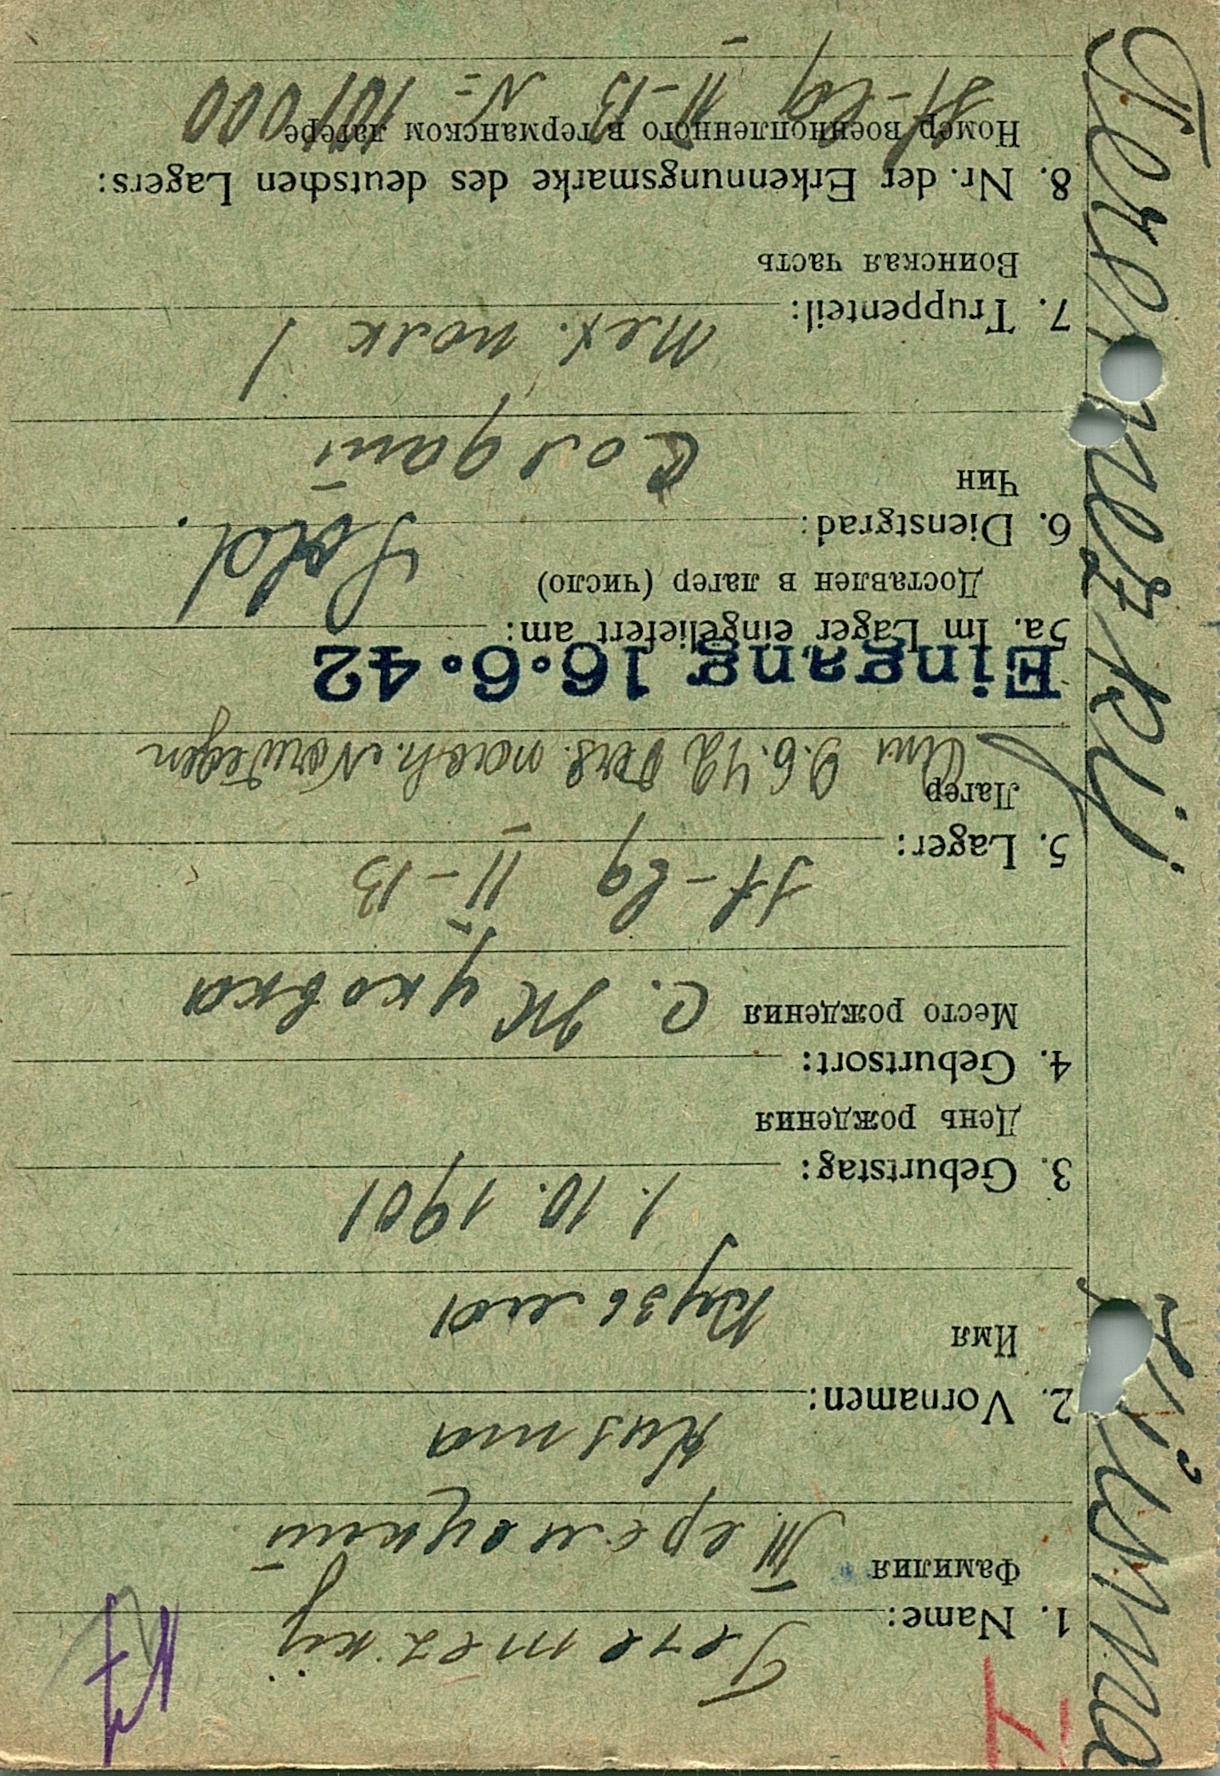 1. Name: Teremezkij
Фамилия Теремецкий
Kusma
2. Vornamen:
Имя Кузьма
1. 10. 1901
3. Geburtstag:
День рождения
4. Geburtsort:
Место рождения С. Жуковка
St-lg II-B
5. Lager:
Лагер
Am 9.6.42 vers. nach Norwegen
Eingang 16.6.42
5a. Im Lager eingeliefert am:
Доставлен в лагер (число)
Sold.
6. Dienstgrad:
Чин Солдат
Мех. полк
7. Truppenteil:
Воинская часть
8. Nr. der Erkennungsmarke des deutschen Lagers:
Номер военнопленного в германском лагере
St-lg II-B N= 107000
Kusma